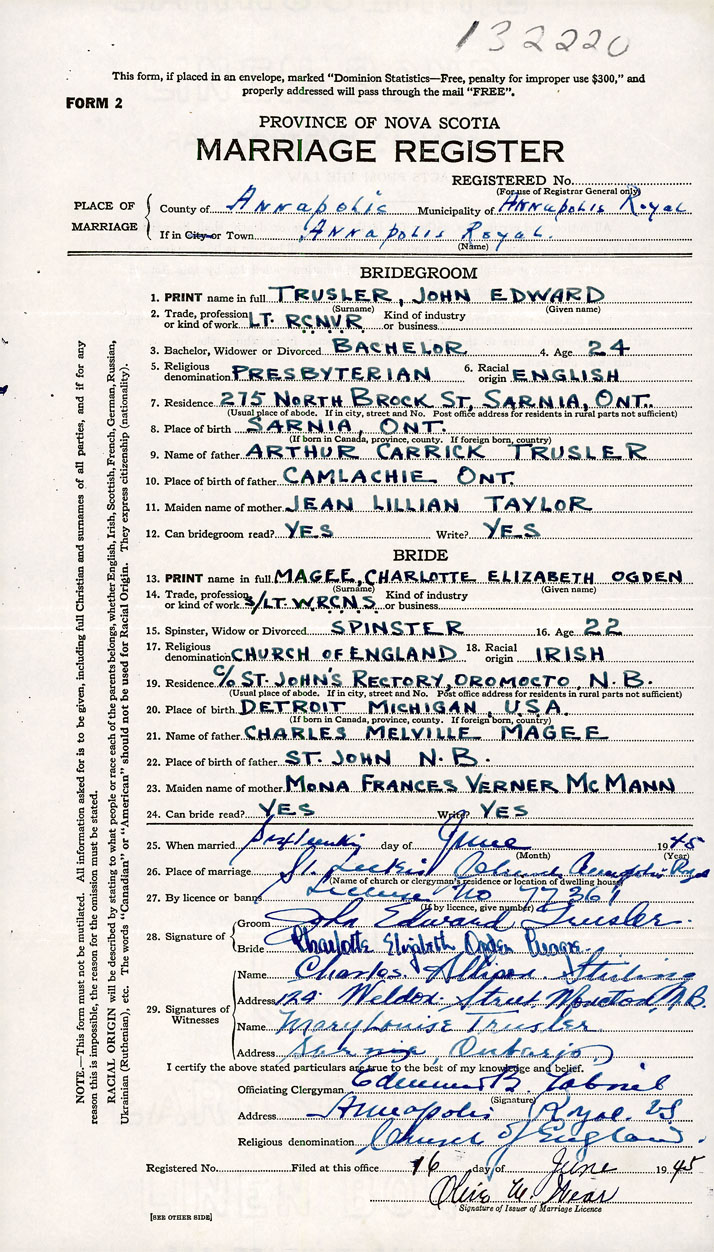 132220
This form, if placed in an envelope, marked "Dominion Statistics—Free, penalty for improper use $300," and
properly addressed will pass through the mail "FREE".
FORM 2
PROVINCE OF NOVA SCOTIA
MARRIAGE REGISTER
REGISTERED No.
(For use of Registrar General only)
PLACE OF MARRIAGE
County of Annapolis Municipality of Annapolis Royal
If in City or Town Annapolis Royal.
(Name)
BRIDEGROOM
1. PRINT name in full TRUSLER, JOHN EDWARD
(Surname) (Given name)
2. Trade, profession or kind of work LT. RCNVR Kind of industry or business
3. Bachelor, Widower or Divorced BACHELOR 4. Age 24
5. Religious denomination PRESBYTERIAN 6. Racial origin ENGLISH
7. Residence 275 NORTH BROCK ST, SARNIA, ONT.
(Usual place of abode. If in city, street and No. Post office address for residents in rural parts not sufficient)
8. Place of birth SARNIA, ONT.
(If born in Canada, province, county. If foreign born, country)
9. Name of father ARTHUR CARRICK TRUSLER
10. Place of birth of father CAMLACHIE ONT.
11. Maiden name of mother JEAN LILLIAN TAYLOR
12. Can bridegroom read? YES Write? YES
BRIDE
13. PRINT name in full MAGEE, CHARLOTTE ELIZABETH OGDEN
(Surname) (Given name)
14. Trade, profession or kind of work S/LT. W.R.C.N.S. Kind of industry or business
15. Spinster, Widow or Divorced SPINSTER 16. Age 22
17. Religious denomination CHURCH OF ENGLAND 18. Racial origin IRISH
19. Residence C/O ST. JOHN'S RECTORY, OROMOCTO, N.B.
(Usual place of abode. If in city, street and No. Post office address for residents in rural parts not sufficient)
20. Place of birth DETROIT MICHIGAN, U.S.A.
(If born in Canada, province, county. If foreign born, country)
21. Name of father CHARLES MELVILLE MAGEE
22. Place of birth of father ST. JOHN N.B.
23. Maiden name of mother MONA FRANCES VERNER MCMANN
24. Can bride read? YES Write? YES
25. When married day of June 1945
(Month) (Year)
26. Place of marriage St. Church Annapolis Royal
(Name of church or clergyman's residence or location of dwelling house)
27. By licence or banns License No
(If by licence, give number)
28. Signature of
Groom John Edward Trusler.
Bride Charlotte Elizabeth Ogden Magee.
29. Signatures of Witnesses
Name Charles Stirling
Address 124 Weldon Street Moncton, N.B.
Name Mary Louise Trusler
Address Sarnia, Ontario
I certify the above stated particulars are true to the best of my knowledge and belief.
Officiating Clergyman
(Signature)
Address Annapolis Royal NS
Religious denomination Church of England.
Registered No. Filed at this office 16 day of June 1945
Signature of Issuer of Marriage Licence
[SEE OTHER SIDE]
NOTE.—This form must not be mutilated. All information asked for is to be given, including full Christian and surnames of all parties, and if for any
reason this is impossible, the reason for the omission must be stated.
RACIAL ORIGIN will be described by stating to what people or race each of the parents belongs, whether English, Irish, Scottish, French, German, Russian,
Ukrainian (Ruthenian), etc. The words "Canadian" or "American" should not be used for Racial Origin. They express citizenship (nationality).